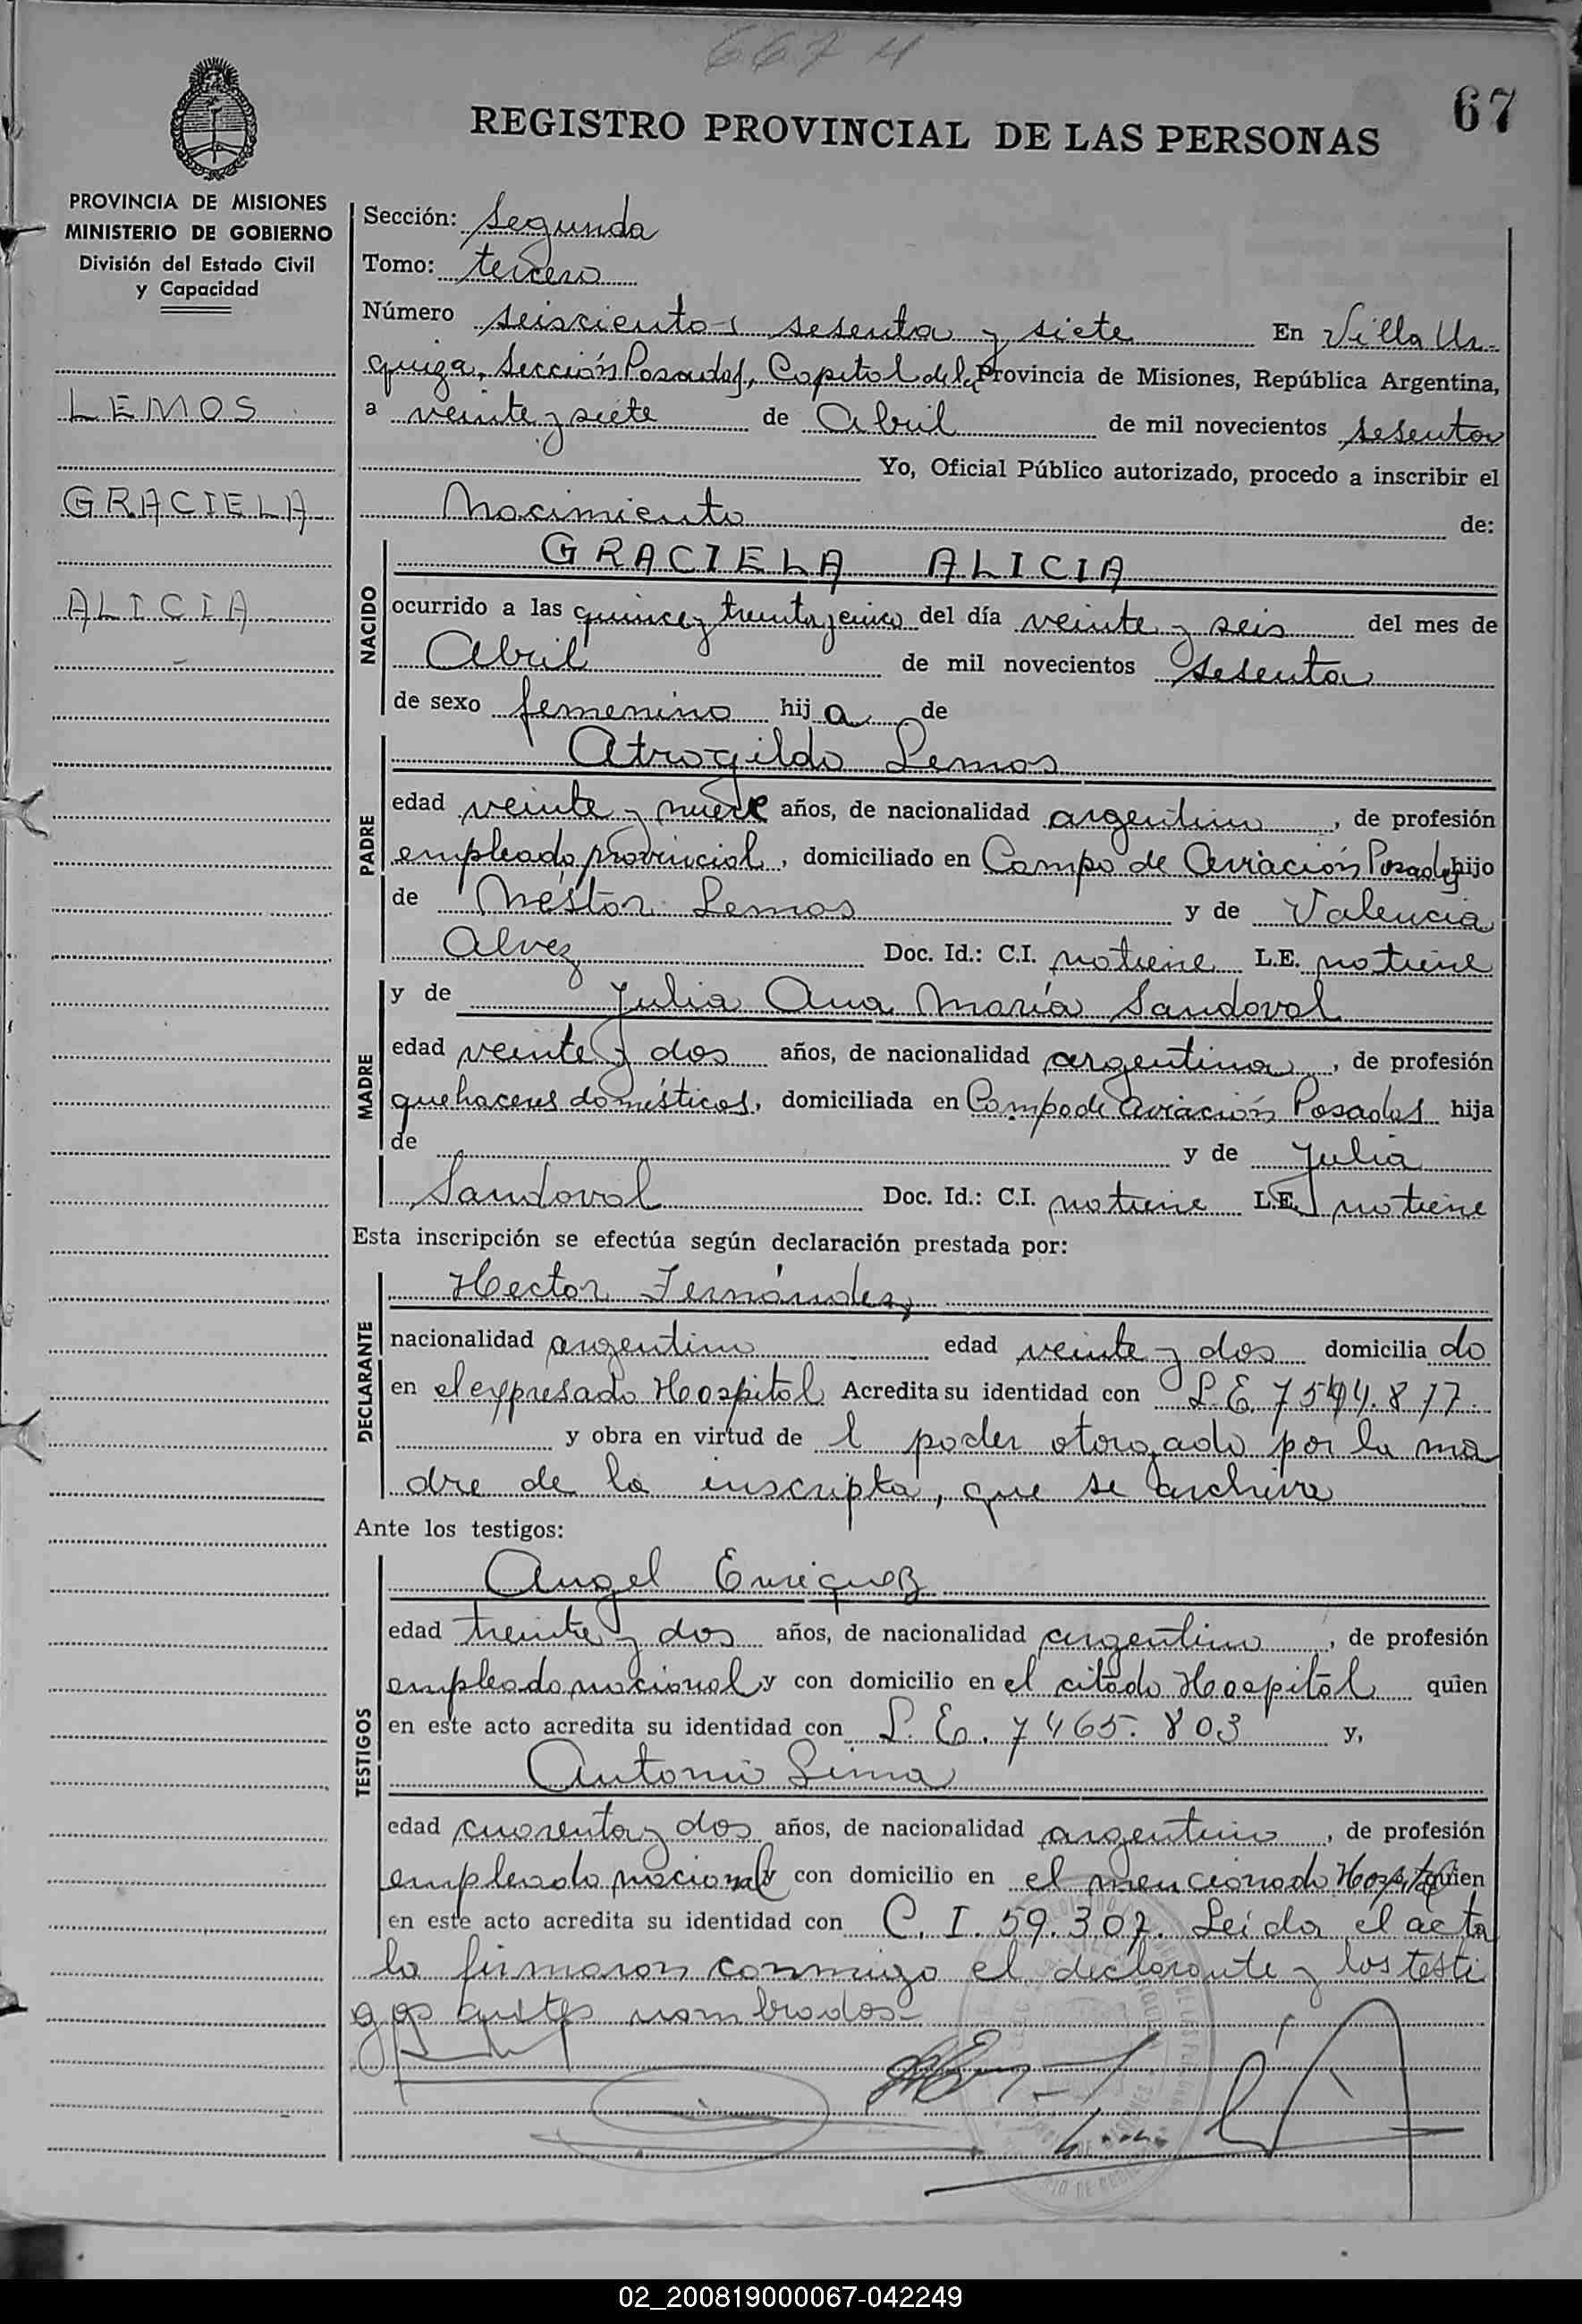 667 N
67
REGISTRO PROVINCIAL DE LAS PERSONAS
PROVINCIA DE MISIONES
MINISTERIO DE GOBIERNO
División del Estado Civil
y Capacidad
LEMOS
GRACIELA
ALICIA
Sección: Segunda
Tomo: tercero
Número seiscientos sesenta y siete En Villa Ur-
quiza, Sección Posadas, Capital de la Provincia de Misiones, República Argentina,
a veinte y siete de Abril de mil novecientos sesenta
Yo, Oficial Público autorizado, procedo a inscribir el
Nacimiento de:
NACIDO
GRACIELA ALICIA
ocurrido a las quince y treinta y cinco del día veinte y seis del mes de
Abril de mil novecientos sesenta
de sexo femenino hija de
PADRE
Atrogildo Lemos
edad veinte y nueve años, de nacionalidad argentino, de profesión
empleado provincial, domiciliado en Campo de Aviación Posadas hijo
de Néstor Lemos y de Valencia
Alvez Doc. Id.: C.I. no tiene L.E. no tiene
MADRE
y de Julia Ana María Sandoval
edad veinte y dos años, de nacionalidad argentina, de profesión
quehaceres domésticos, domiciliada en Campo de Aviación Posadas hija
de y de Julia
Sandoval Doc. Id.: C.I. no tiene L.E. no tiene
Esta inscripción se efectúa según declaración prestada por:
DECLARANTE
Hector Fernández,
nacionalidad argentino edad veinte y dos domiciliado
en el expresado Hospital Acredita su identidad con L.E. 7544.817
y obra en virtud del poder otorgado por la ma
dre de la inscripta, que se archiva
Ante los testigos:
TESTIGOS
Angel Enriquez
edad treinta y dos años, de nacionalidad argentino, de profesión
empleado nacional y con domicilio en el citado Hospital quien
en este acto acredita su identidad con L.E. 7465.803 y,
Antonio Lima
edad cuarenta y dos años, de nacionalidad argentino, de profesión
empleado nacional y con domicilio en el mencionado Hospital quien
en este acto acredita su identidad con C.I. 59.307. Leída el acta
la firmaron conmigo el declarante y los testi
gos antes nombrados-
02_200819000067-042249